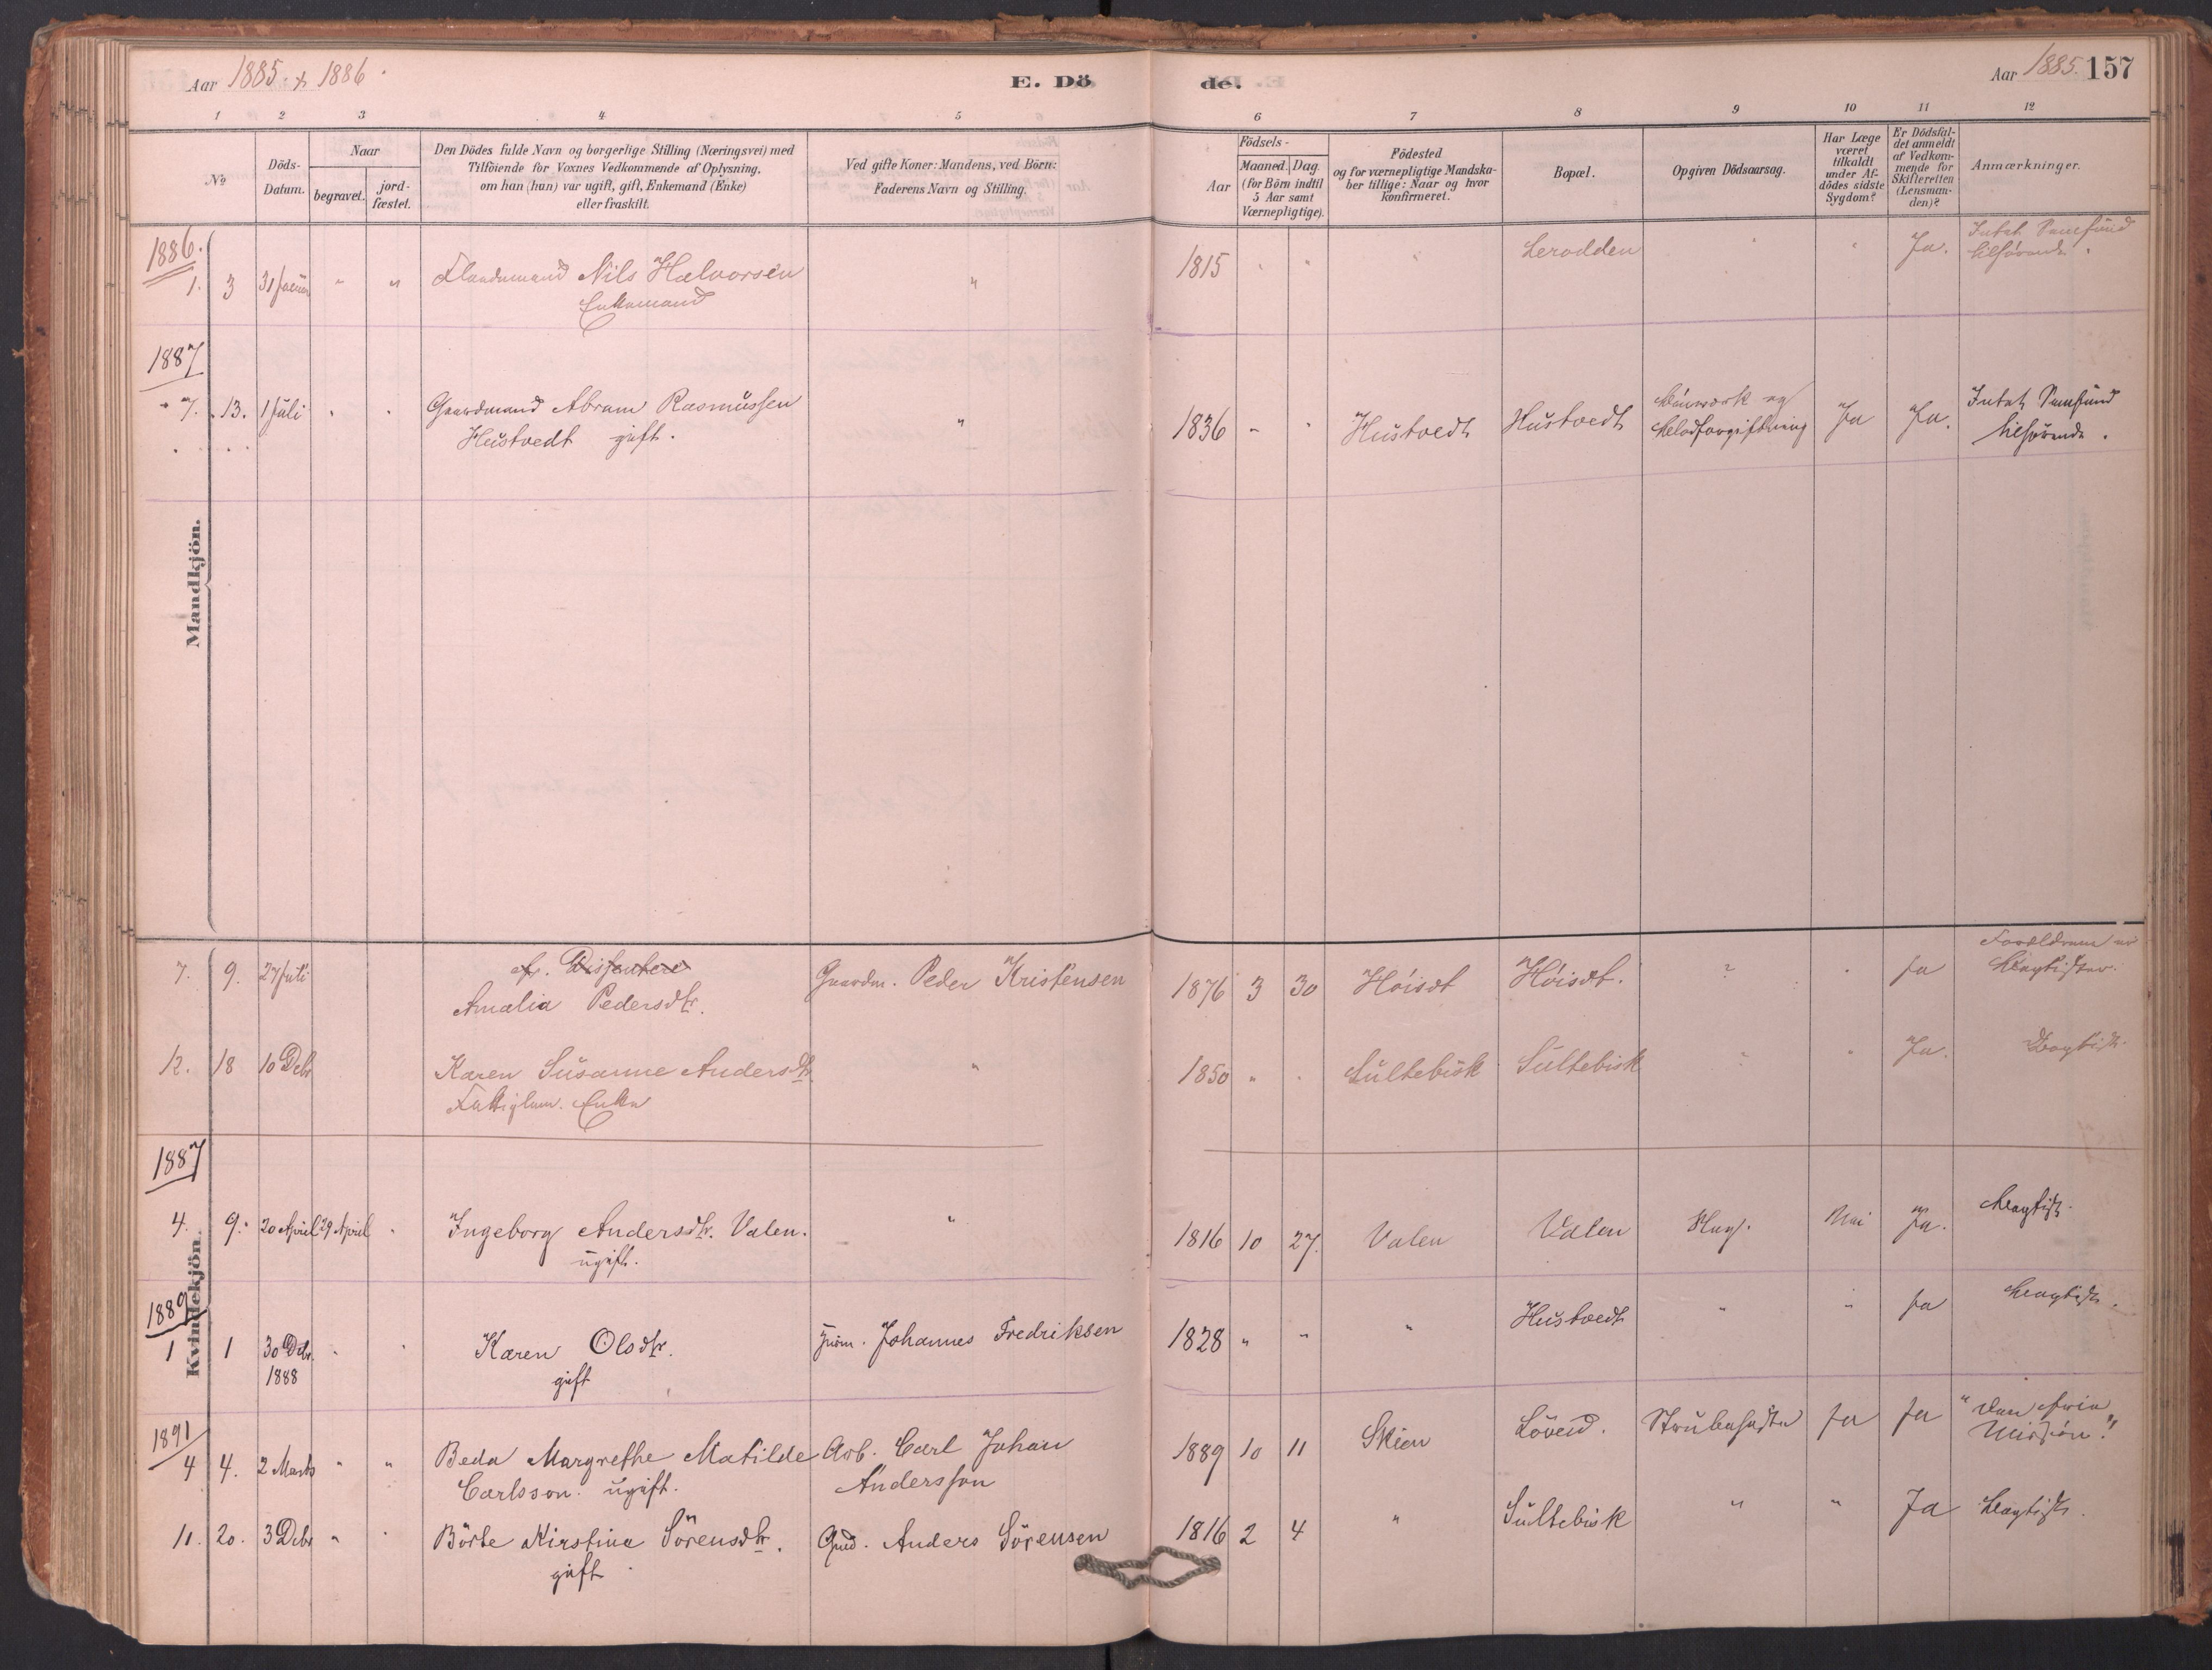 Aar 1885 & 1886.
E. Dö
de.
Aar 1885. 157
1 2 3 4 5 6 7 8 9 10 11 12
No
Döds-
Datum.
Naar
begravet.
jord-
fæstet.
Den Dödes fulde Navn og borgerlige Stilling (Næringsvei) med
Tilföiende for Voxnes Vedkommende af Oplysning,
om han (hun) var ugift, gift, Enkemand (Enke)
eller fraskilt.
Ved gifte Koner: Mandens, ved Börn:
Faderens Navn og Stilling.
Födsels-
Aar
Maaned. Dag.
(for Börn indtil
5 Aar samt
Værnepligtige).
Födested
og for værnepligtige Mandska-
ber tillige: Naar og hvor
konfirmeret.
Bopæl.
Opgiven Dödsaarsag.
Har Læge
været
tilkaldt
under Af-
dödes sidste
Sygdom?
Er Dödsfal-
det anmeldt
af Vedkom-
mende for
Skifteretten
(Lensman-
den)?
Anmærkninger.
Mandkjön.
1886.
1. 3 31 Januar " " Nils Halvorsen " 1815 " " " Lerodden " " Ja. Intet Samfund
Enkemand tilhørende.
1887
7. 13. 1 Juli " " Gaardmand Abram Rasmussen " 1836 " " Hustvedt Hustvedt og Ja Ja. Intet Samfund
Hustvedt gift. Blodforgiftning tilhørende.
Kvindekjön.
af. Dissentere
7. 9. 27 Juli Amalia Pedersdtr. Gaardm. Peder Kristensen 1876 3 30 Höisdt Höisdt. ? " Ja Forældrene er
Baptister.
12. 18 10 Debr Karen Susanne Andersdtr. " 1850 " " Sultebisk Sultebisk " " Ja. Baptist.
Fattiglem. Enke
1887
4. 9. 20 April 29 April " Ingeborg Andersdtr. Valen. " 1816 10 27. Valen Valen Nei Ja. Baptist.
ugift.
1889
1 1 30 Debr. " " Karen Olsdtr. Johannes Fredriksen 1828 " " " Hustvedt " " Ja Baptist.
1888 gift
1891
4 4. 2 Marts " " Beda Margrethe Matilde Arb. Carl Johan 1889 10 11 Skien Löveid. Strubehoste Ja Ja "Den frie
Carlsson. ugift. Andersson Mission."
11. 20. 3 Debr " " Börte Kirstine Sörensdtr. Gmd. Anders Sörensen 1816 2 4 " Sultebisk " " Ja Baptist.
gift.